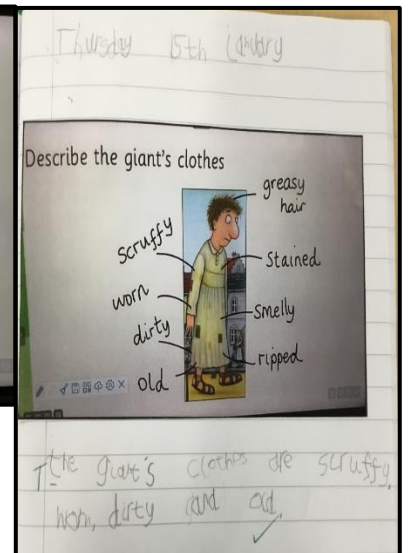 Thursday 15th January
Describe the giant's clothes
greasy
hair
scruffy
stained
worn
smelly
dirty
ripped
old
The giant's clothes are scruffy,
worn, dirty and old.